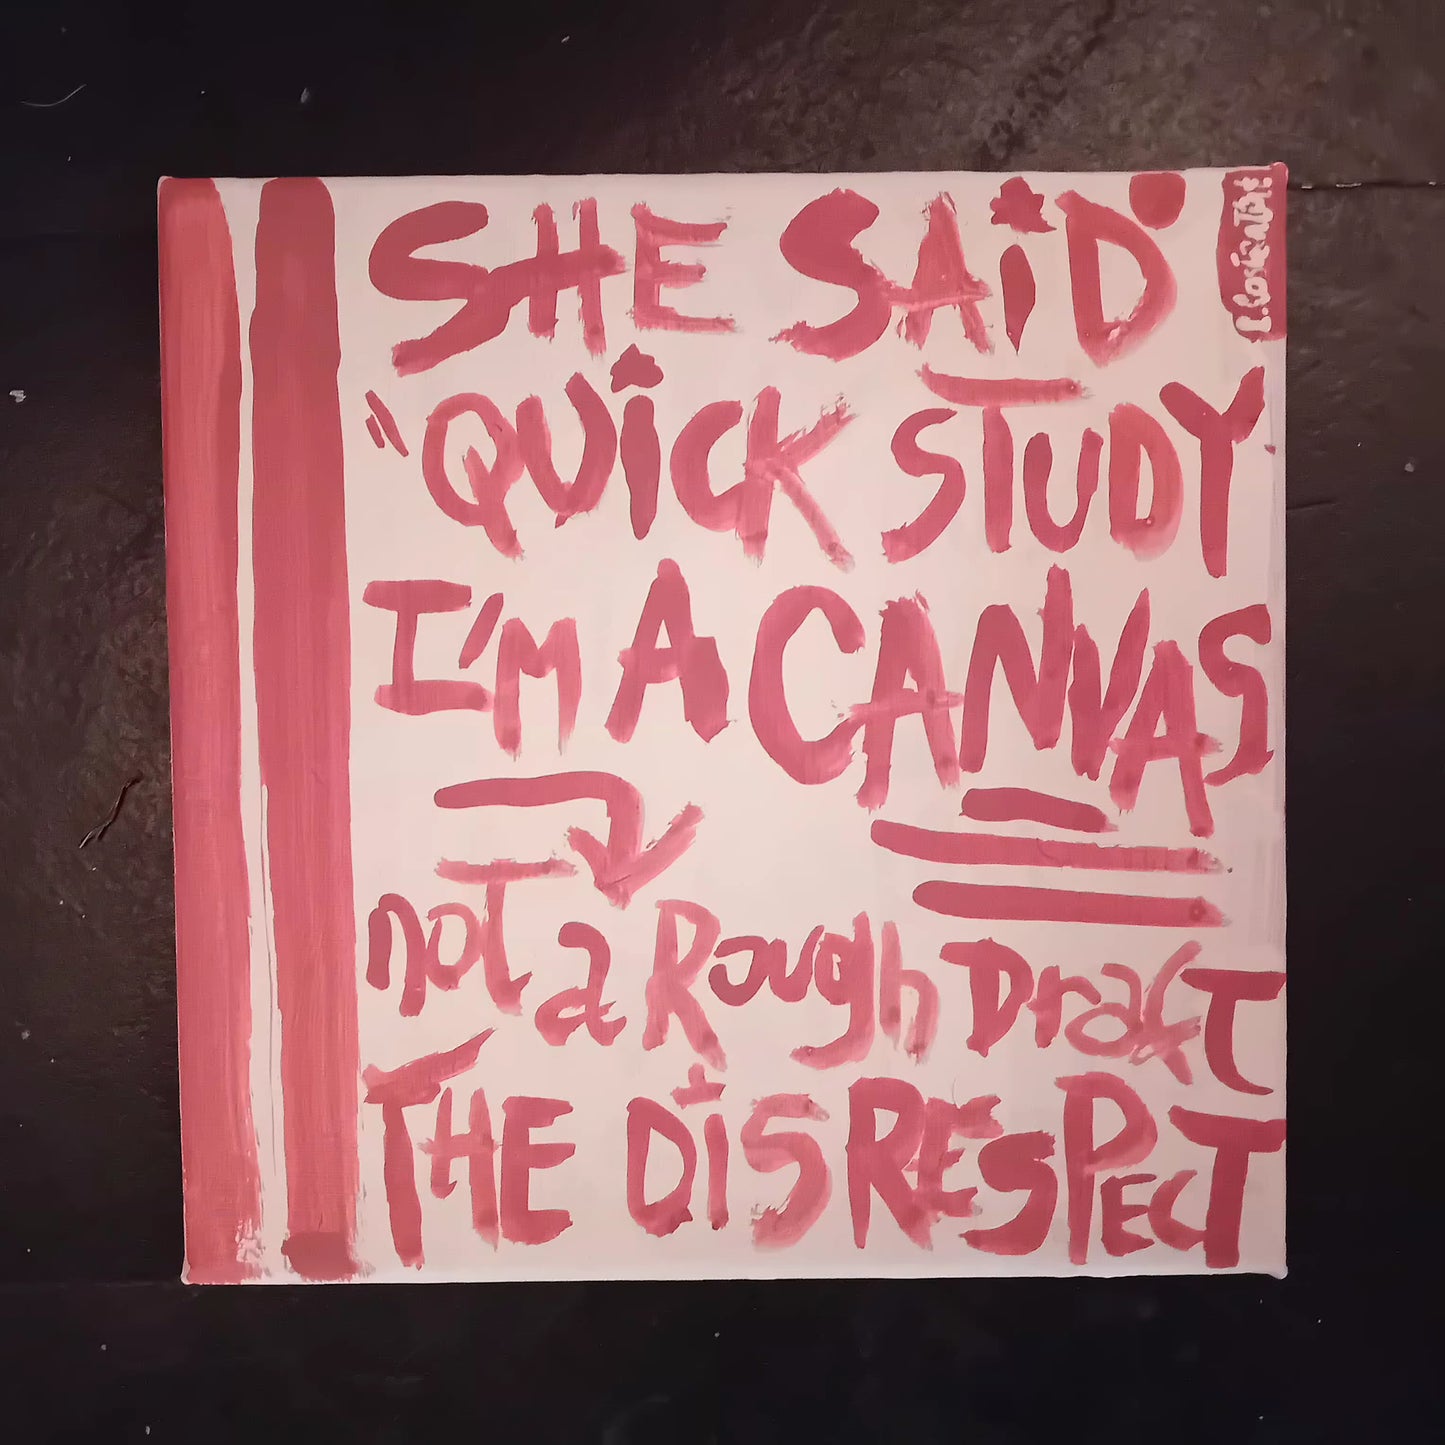 SHE SAiD
"QUiCK STUDY
I'M A CANVAS
noT a Rough DrafT
THE DiSRESPECT